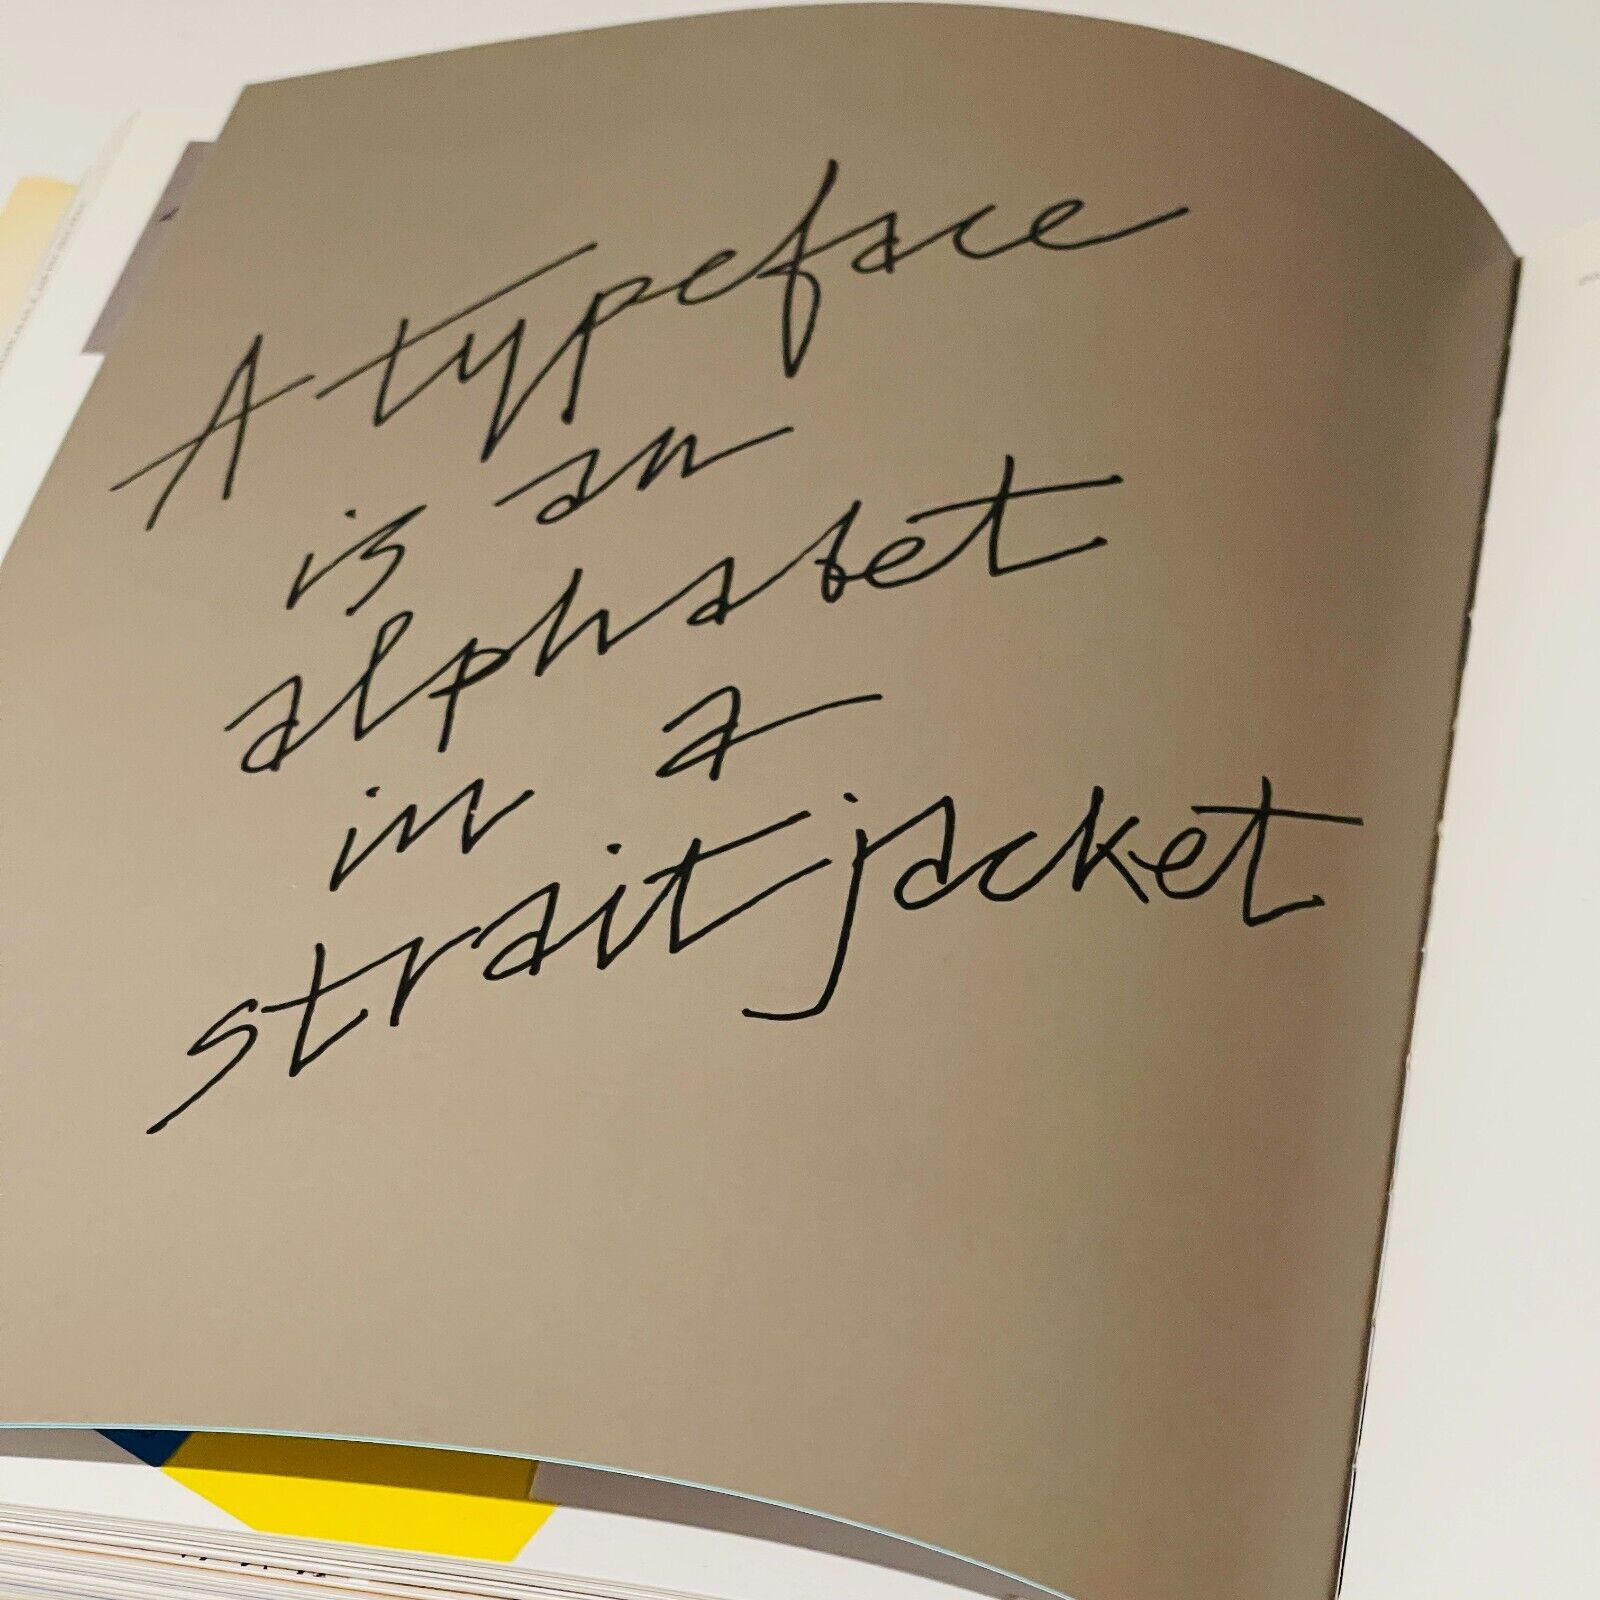 A typeface
is an
alphabet
in a
straitjacket